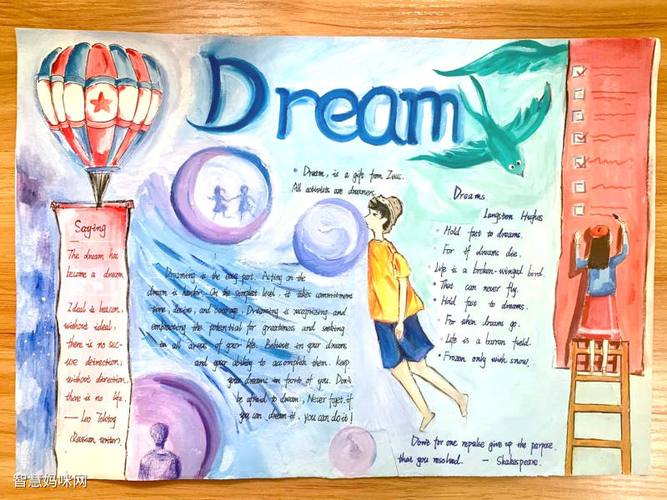 Dream
Saying
The dream has
become a dream
Ideal is beacon,
without ideal,
there is no sec-
ure detrection;
without derection
there is no life.
— Leo Tolstoy
(Russian writer).
Dream, is a gift from Zeus.
All activists are dreamers.
Dreaming is the easy part. Acting on the
dream is harder. On the simplest level, it takes commitment
time, desire, and courage. Dreaming is recognizing and
embracing the potential for greatness and seeking
in all areas of your life. Believe in your dream
and your ability to accomplish them. keep
your dreams in front of you. Don't
be afraid to dream, Never forget, if
you can dream it, you can do it!
Dreams
Langston Hughes
Hold fast to dreams.
For if dreams die.
Life is a broken-winged bird.
That can never fly.
Hold fast to dreams.
For when dreams go.
Life is a barren field.
Frozen only with snow.
Don't for one repulse give up the purpose
that you resolved. — Shakespeare.
智慧妈咪网